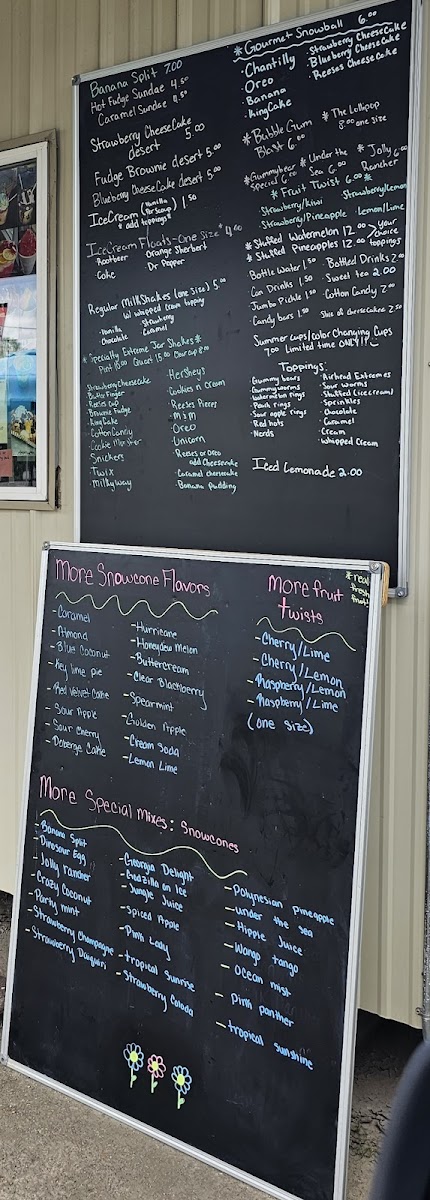 Banana Split 7.00
Hot Fudge Sundae 4.50
Caramel Sundae 4.50
Strawberry CheeseCake
desert 5.00
Fudge Brownie desert 5.00
Blueberry CheeseCake desert 5.00
IceCream (Vanilla Per Scoop) 1.50
* add toppings *
IceCream Floats-One Size * 4.00
Rootbeer Orange Sherbert
Coke Dr. Pepper
Regular MilkShakes (one size) 5.00
w/ whipped cream topping
Vanilla Strawberry
Chocolate Caramel
* Specialty Extreme Jar Shakes *
Strawberry Cheesecake
Butter Finger
Reeses Cup
Brownie Fudge
KingCake
Cotton Candy
Cookie Monster
Snickers
Twix
Milkyway
Hersheys
Cookies n Cream
Reeses Pieces
M&M
Oreo
Unicorn
Reeses or Oreo
add Cheesecake
Caramel Cheesecake
Banana Pudding
* Gourmet Snowball 6.00
· Chantilly
· Oreo
· Banana
· KingCake
· Strawberry CheeseCake
· Blueberry CheeseCake
· Reeses CheeseCake
* Bubble Gum
Blast 6.00
* The Lollipop
8.00 one size
* Gummybear
Special 6.00
* Under the
Sea 6.00
* Jolly 6.00
Rancher
* Fruit Twist 6.00 *
Strawberry/Kiwi Strawberry/Lemon
Strawberry/Pineapple Lemon/Lime
* Stuffed Watermelon 12.00
* Stuffed Pineapples 12.00
your
choice
toppings
Bottle Water 1.50 Bottled Drinks 2.00
Can Drinks 1.50 Sweet tea 2.00
Jumbo Pickle 1.50 Cotton Candy 2.00
Candy bars 1.50 Slice of cheesecake 2.50
Summer cups/color Changing Cups
7.00 Limited time ONLY!!!
Toppings:
Gummy bears
Gummyworms
Watermelon rings
Peach rings
Sour apple rings
Red hots
Nerds
Airhead Extremes
Sour worms
Stuffed (icecream)
Sprinkles
Chocolate
Caramel
Cream
Whipped Cream
Iced Lemonade 2.00
More Snowcone Flavors
- Caramel
- Almond
- Blue Coconut
- Key lime pie
- Red Velvet Cake
- Sour Apple
- Sour Cherry
- Doberge Cake
- Hurricane
- Honeydew Melon
- Buttercream
- Clear Blackberry
- Spearmint
- Golden Apple
- Cream Soda
- Lemon Lime
More fruit
twists
* real
fresh
fruit!
- Cherry/Lime
- Cherry/Lemon
- Raspberry/Lemon
- Raspberry/Lime
(one size)
More Special mixes: Snowcones
- Banana Split
- Dinosaur Egg
- Jolly rancher
- Crazy Coconut
- Party mint
- Strawberry Champagne
- Strawberry Daiquiri
- Georgia Delight
- Godzilla on Ice
- Jungle Juice
- Spiced Apple
- Pink Lady
- tropical Sunrise
- Strawberry Colada
- Polynesian Pineapple
- under the sea
- Hippie Juice
- Wango tango
- ocean mist
- Pink panther
- tropical sunshine